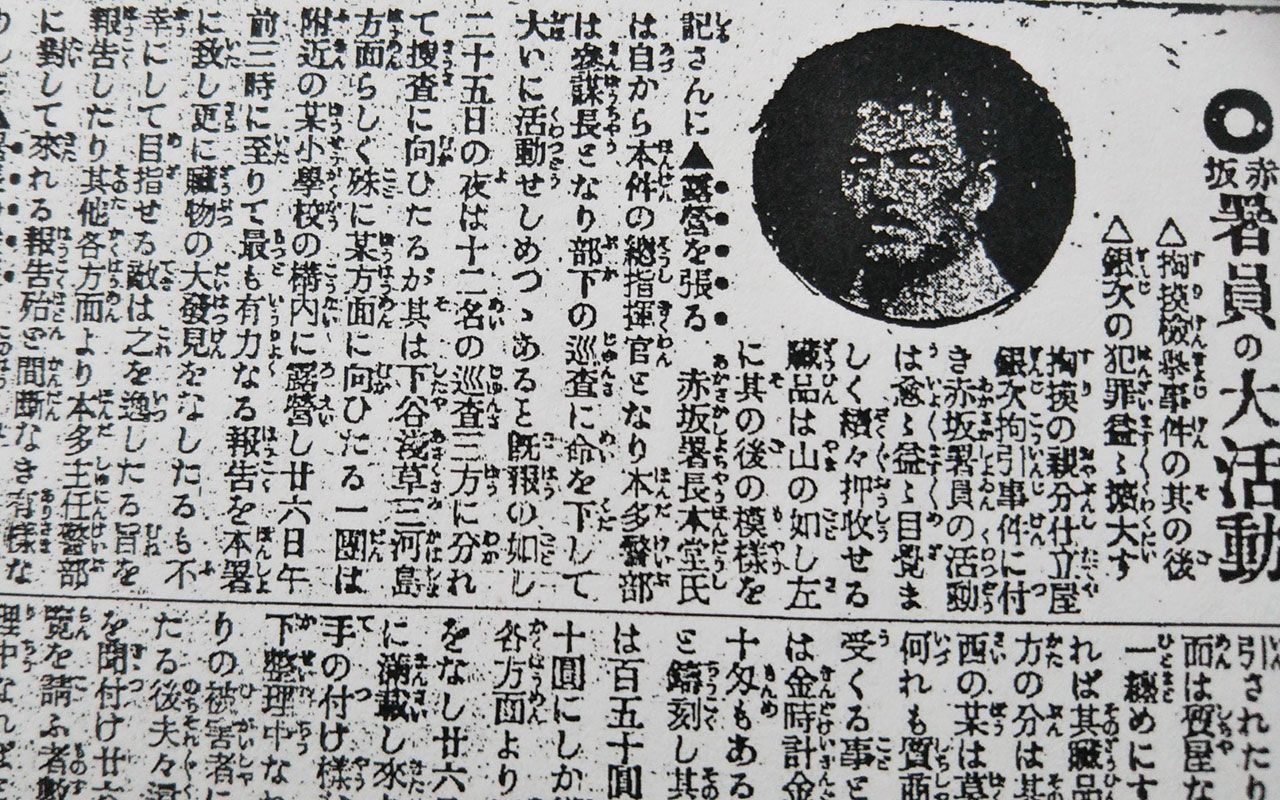 赤坂署員の大活動
△掏摸檢擧事件の其の後
△銀次の犯罪益々擴大す
掏摸の親分仕立屋
銀次拘引事件に付
き赤坂署員の活動
は益々目覺ま
しく續々押收せる
贓品は山の如し左
に其の後の模樣を
記さんに▲露營を張る 赤坂署長本堂氏
は自から本件の總指揮官となり本多警部
は參謀長となり部下の巡査に命を下して
大いに活動せしめつゝあると既報の如し
二十五日の夜は十二名の巡査三方に分れ
て搜査に向ひたるが其は下谷淺草三河島
方面らしく殊に某方面に向ひたる一團は
附近の某小學校の構内に露營し廿六日午
前三時に至りて最も有力なる報告を本署
に致し更に贓物の大發見をなしたるも不
幸にして目指せる敵は之を逸したる旨を
報告したり其他各方面より本多主任警部
に對して來れる報告殆ど間斷なき有樣な
引されたり
面は質屋な
一纏めにす
れば其贓品
方の分は其
西の某は
何れも質商
受くる事と
は金時計金
十匁もある
と鑄刻し其
は百五十圓
十圓にしか
各方面より
をなし廿六
に滿載し來
手の付け樣
下整理中な
りの被害者に
たる後夫々
を聞付け廿六
覽を請ふ者
理中なれば